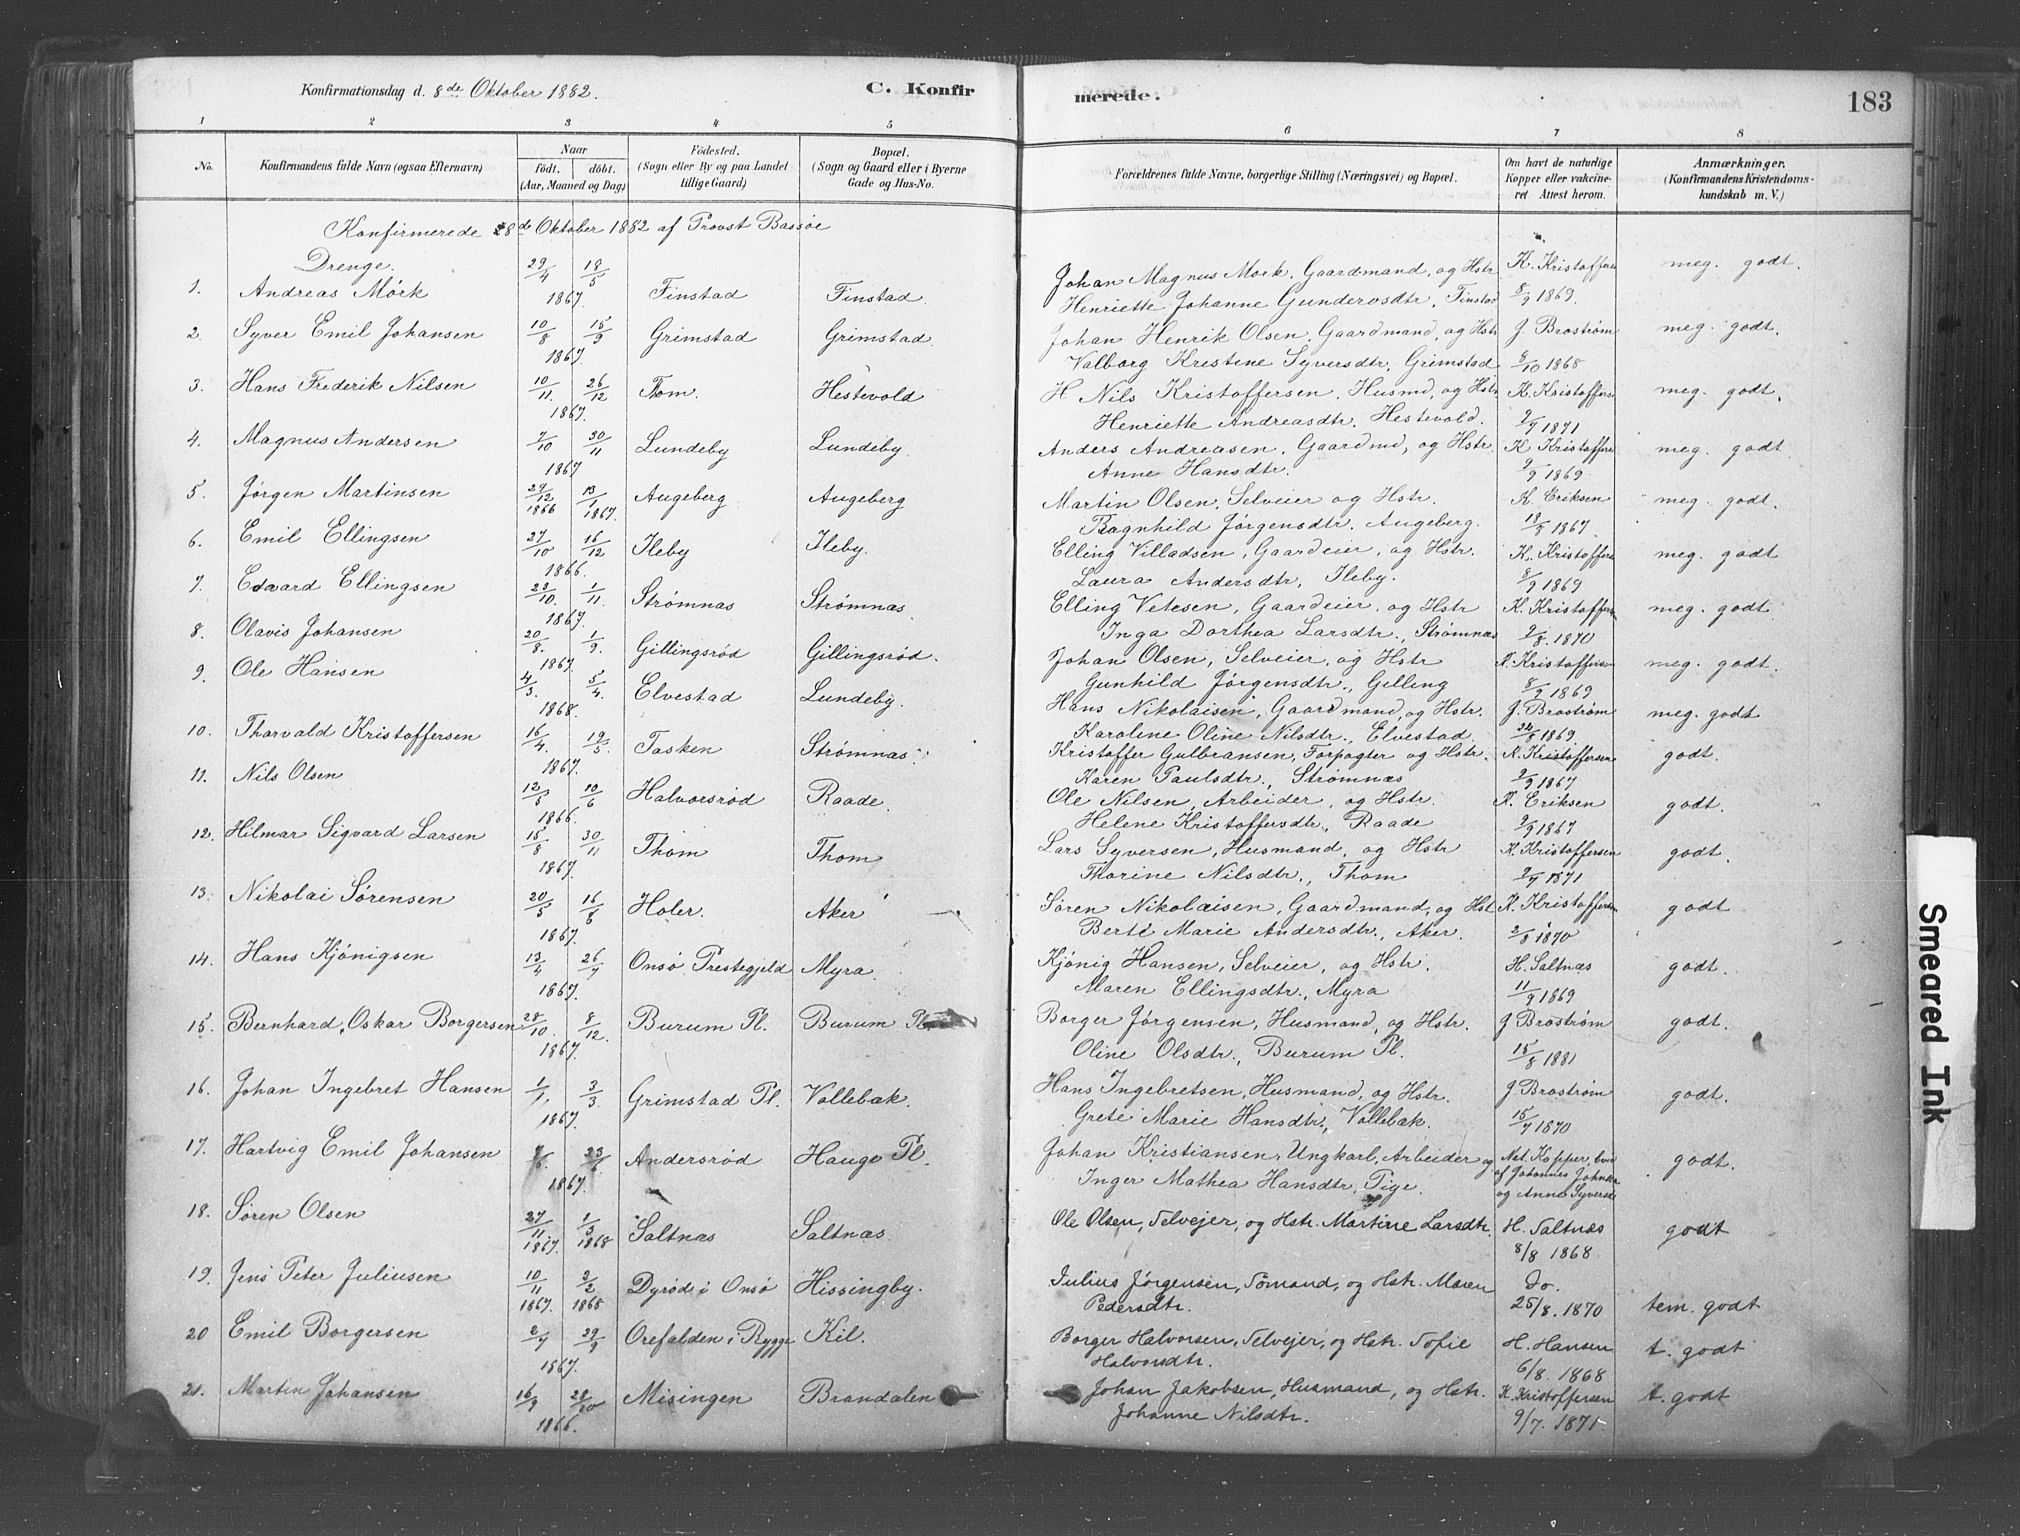 Konfirmationsdag d. 8de Oktober 1882.
C. Konfir
merede.
183
1 2 3 4 5 6 7 8
No. Konfirmandens fulde Navn (ogsaa Efternavn) Naar födt. döbt. (Aar, Maaned og Dag) Födested. (Sogn eller By og paa Landet tillige Gaard) Bopæl. (Sogn og Gaard eller i Byerne Gade og Hus-No.) Forældrenes fulde Navne, borgerlige Stilling (Næringsvei) og Bopæl. Om havt de naturlige Kopper eller vakcineret Attest herom. Anmærkninger. (Konfirmandens Kristendomskundskab m. V.)
Konfirmerede 8de Oktober 1882 af Provst Bassøe
Drenge.
1. Andreas Mörk 29/4 18/5 1867. Finstad Finstad. Johan Magnus Mork, Gaardmand, og Hstr K. Kristoffers meg. godt.
Henriette Johanne Gundersdtr, Finstad 8/9 1869.
2. Syver Emil Johansen 10/8 15/9 1867. Grimstad Grimstad. Johan Henrik Olsen, Gaardmand, og Hstr J. Brostrøm meg. godt.
Valborg Kristine Syversdtr, Grimstad 5/10 1868
3. Hans Frederik Nilsen 10/11. 26/12 1867. Thom. Hestevold H Nils Kristoffersen, Husmd, og Hstr K. Kristoffers meg. godt.
Henriette Andreasdtr. Hestevold. 9/7 1871
4. Magnus Andersen 7/10 30/11 1867 Lundeby Lundeby. Anders Andreasen, Gaardmd, og Hstr. K Kristoffers meg. godt.
Anne Hansdtr. 9/9 1869
5. Jørgen Martinsen 29/12 1866 13/1 1867. Augeberg Augeberg Martin Olsen, Selveier og Hstr. K. Eriksen meg. godt.
Ragnhild Jørgensdtr. Augeberg. 19/8 1867
6. Emil Ellingsen 27/10 16/12 1866. Ileby Ileby. Elling Villadsen, Gaardeier, og Hstr. K. Kristoffers meg. godt
Laura Andersdtr, Ileby. 8/9 1869
7. Edvard Ellingsen 23/10. 1/11. 1867. Strømnæs Strømnæs Elling Vetesen, Gaardeier, og Hstr K. Kristoffers meg. godt
Inga Dorthea Larsdtr., Strømnæs 2/8. 1870
8. Olavis Johansen 20/8. 1/9. 1867. Gillingsrød Gillingsrød. Johan Olsen, Selveier, og Hstr K. Kristoffersen meg. godt.
Gunhild Jørgensdtr., Gilling 8/9 1869
9. Ole Hansen 4/3. 5/4. 1868. Elvestad Lundeby. Hans Nikolaisen, Gaardmand, og Hstr. J. Brostrøm meg. godt
Karoline Oline Nilsdtr., Elvestad 24/8 1869
10. Tharvald Kristoffersen 16/4. 19/5. 1867. Tasken Strømnæs Kristoffer Gulbransen, Forpagter og Hstr. K. Kristoffersen godt.
Karen Paulsdtr., Strømnæs 2/9 1867
11. Nils Olsen 12/5 10/6 1866. Halvorsrød Raade. Ole Nilsen, Arbeider, og Hstr. K. Eriksen godt
Helene Kristoffersdtr., Raade 2/9 1867
12. Hilmar Sigvard Larsen 15/8 30/11 1867. Thom Thom Lars Syversen, Husmand, og Hstr K. Kristoffersen godt.
Thorine Nilsdtr., Thom 9/7 1871
13. Nikolai Sørensen 20/5 16/6 1867. Holer. Aker Søren Nikolaisen, Gaardmand, og Hst K. Kristoffersen godt
Berte Marie Andersdtr., Aker. 2/8 1870
14. Hans Kjönigsen 13/4 26/7 1867. Onsö Prestegjeld Myra. Kjönig Hansen, Selveier, og Hstr. H. Saltnæs godt.
Maren Ellingsdtr., Myra 11/9 1869
15. Bernhard Oskar Borgersen 28/10. 8/12. 1867. Burum Pl. Burum Pl. Borger Jørgensen, Husmand, og Hstr. J Brostrøm godt.
Oline Olsdtr., Burum Pl. 15/8 1881
16. Johan Ingebret Hansen 1/1 3/3. 1867. Grimstad Pl. Vollebæk. Hans Ingebretsen, Husmand, og Hstr. J Brostrøm godt.
Grete Marie Hansdtr., Vollebæk. 15/7 1870
17. Hartvig Emil Johansen 23/6 1867. Andersrød Hauge Pl. Johan Kristiansen, Ungkarl, Arbeider og Nat. Kopper, bevd godt.
Inger Mathea Hansdtr, Pige. af Johannes Johnsen
og Anne Syversd
18. Søren Olsen 27/11. 1867. 1/3 1868 Saltnæs Saltnæs. Ole Olsen, Selvejer, og Hstr. Martine Larsdtr. H. Saltnæs godt
8/8 1868.
19. Jens Peter Juliusen 10/11 1867. 2/2 1868 Dyrød i Onsö Hissingby. Julius Jørgensen, Sömand, og Hstr. Maren Do.
Pedersdtr. 25/8. 1870 tem. godt
20 Emil Borgersen 2/7 29/9 1867. Orefalden i Rygge Kil. Borger Halvorsen, Selvejer, og Hstr. Sofie H. Hansen t. godt
Halvorsdtr. 6/8. 1868
21. Martin Johansen 16/9 28/10 1866. Misingen Brandalen Johan Jakobsen, Husmand, og Hstr. K. Kristoffersen t. godt
Johanne Nilsdtr. 9/7. 1871.
Smeared Ink